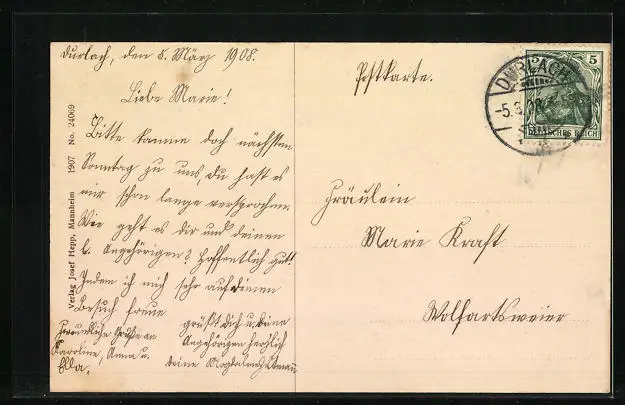 Durlach, den 5. März 1908.
Liebe Marie!
Bitte komme doch nächsten
Sonntag zu uns, du hast es
mir schon lange versprochen.
Wie geht es dir und deinen
l. Angehörigen? Hoffentlich gut!
Indem ich mich sehr auf deinen
Besuch freue
grüßt dich u. deine
Angehörigen herzlich
deine Magdalena
Freundliche Grüße an
Karoline, Anna u.
Ella.
Verlag Josef Hepp, Mannheim 1907 No. 24069
Postkarte.
DURLACH
-5.3.08
5
DEUTSCHES REICH
Fräulein
Marie Kraft
Wolfartsweier